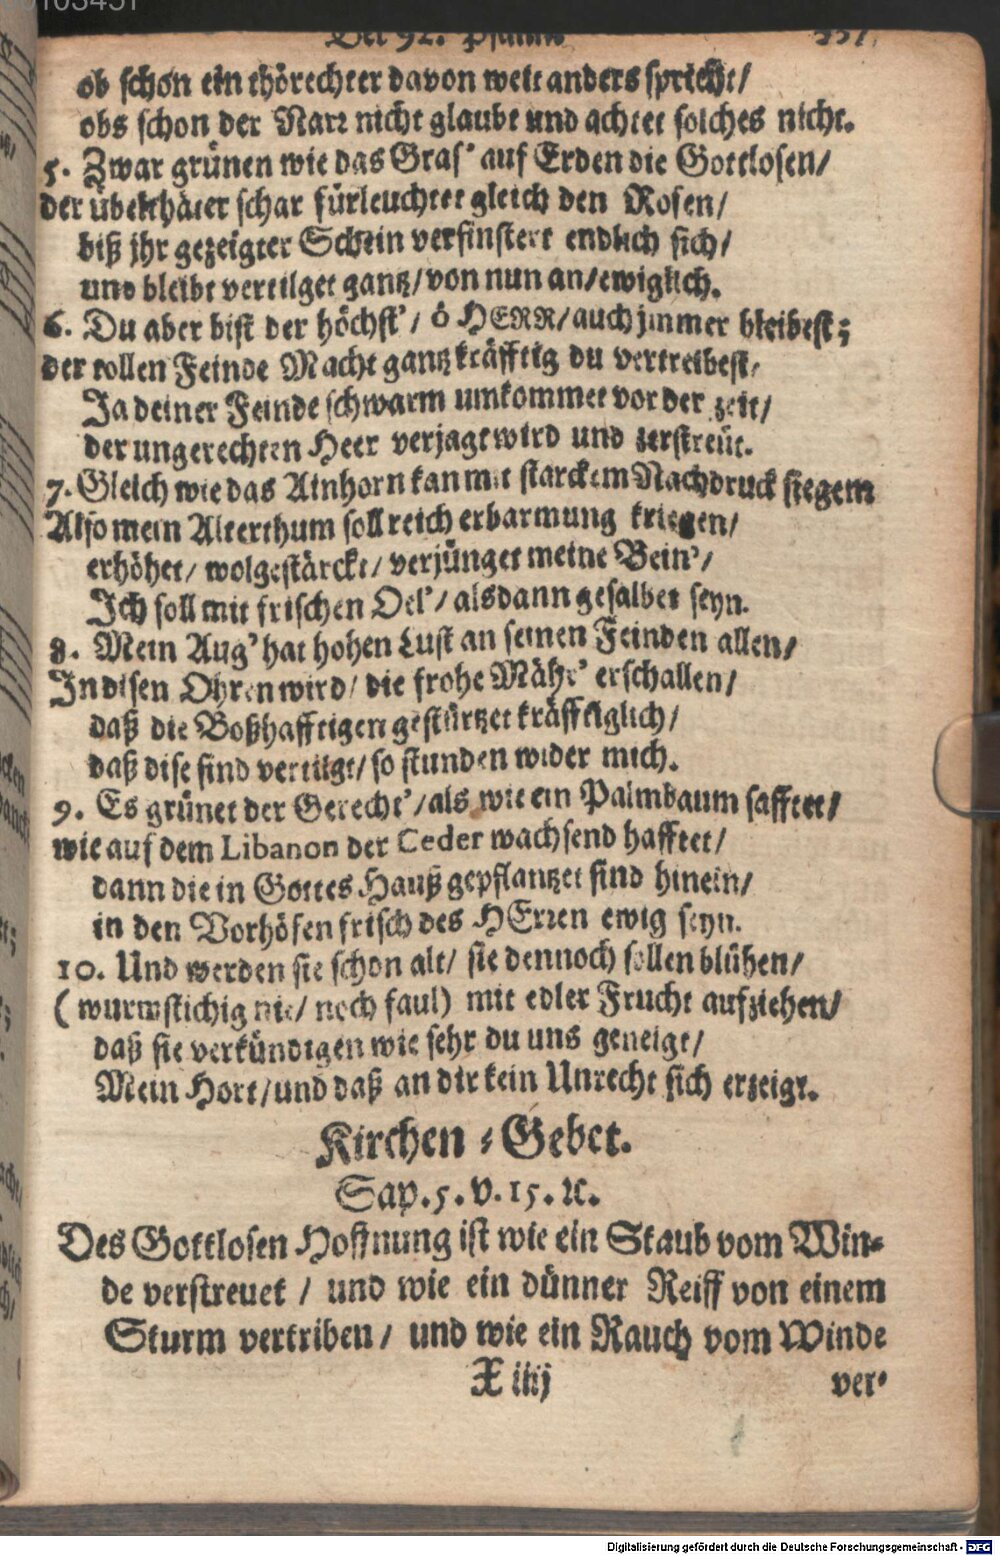 Der 92. Psalm
ob schon ein thörechter davon weit anders spricht/
obs schon der Narr nicht glaubt und achtet solches nicht.
5. Zwar grünen wie das Gras' auf Erden die Gottlosen/
der übelthäter schar fürleuchtet gleich den Rosen/
biß jhr gezeigter Schein verfinstert endlich sich/
und bleibt vertilget gantz/ von nun an/ ewiglich.
6. Du aber bist der höchst'/ ô HERR/ auch jmmer bleibest;
der tollen Feinde Macht gantz kräfftig du vertreibest/
Ja deiner Feinde schwarm umkommet vor der zeit/
der ungerechten Heer verjagt wird und zerstreüt.
7. Gleich wie das Ainhorn kan mit starckem Nachdruck siegem
Also mein Alterthum soll reich erbarmung kriegen/
erhöhet/ wolgestärckt/ verjünget meine Bein'/
Ich soll mit frischen Oel'/ alsdann gesalbet seyn.
8. Mein Aug' hat hohen Lust an seinen Feinden allen/
In disen Ohren wird/ die frohe Mähr' erschallen/
daß die Boßhafftigen gestürtzet kräfftiglich/
daß dise sind vertilgt/ so stunden wider mich.
9. Es grünet der Gerecht'/ als wie ein Palmbaum safftet/
wie auf dem Libanon der Ceder wachsend hafftet/
dann die in Gottes Hauß gepflantzet sind hinein/
in den Vorhöfen frisch des HErren ewig seyn.
10. Und werden sie schon alt/ sie dennoch sollen blühen/
(wurmstichig nie/ noch faul) mit edler Frucht aufziehen/
daß sie verkündigen wie sehr du uns geneigt/
Mein Hort/ und daß an dir kein Unrecht sich erzeigt.
Kirchen-Gebet.
Sap. 5. v. 15. ꝛc.
Des Gottlosen Hoffnung ist wie ein Staub vom Win-
de verstreuet / und wie ein dünner Reiff von einem
Sturm vertriben/ und wie ein Rauch vom Winde
X iiij
ver-
Digitalisierung gefördert durch die Deutsche Forschungsgemeinschaft - DFG